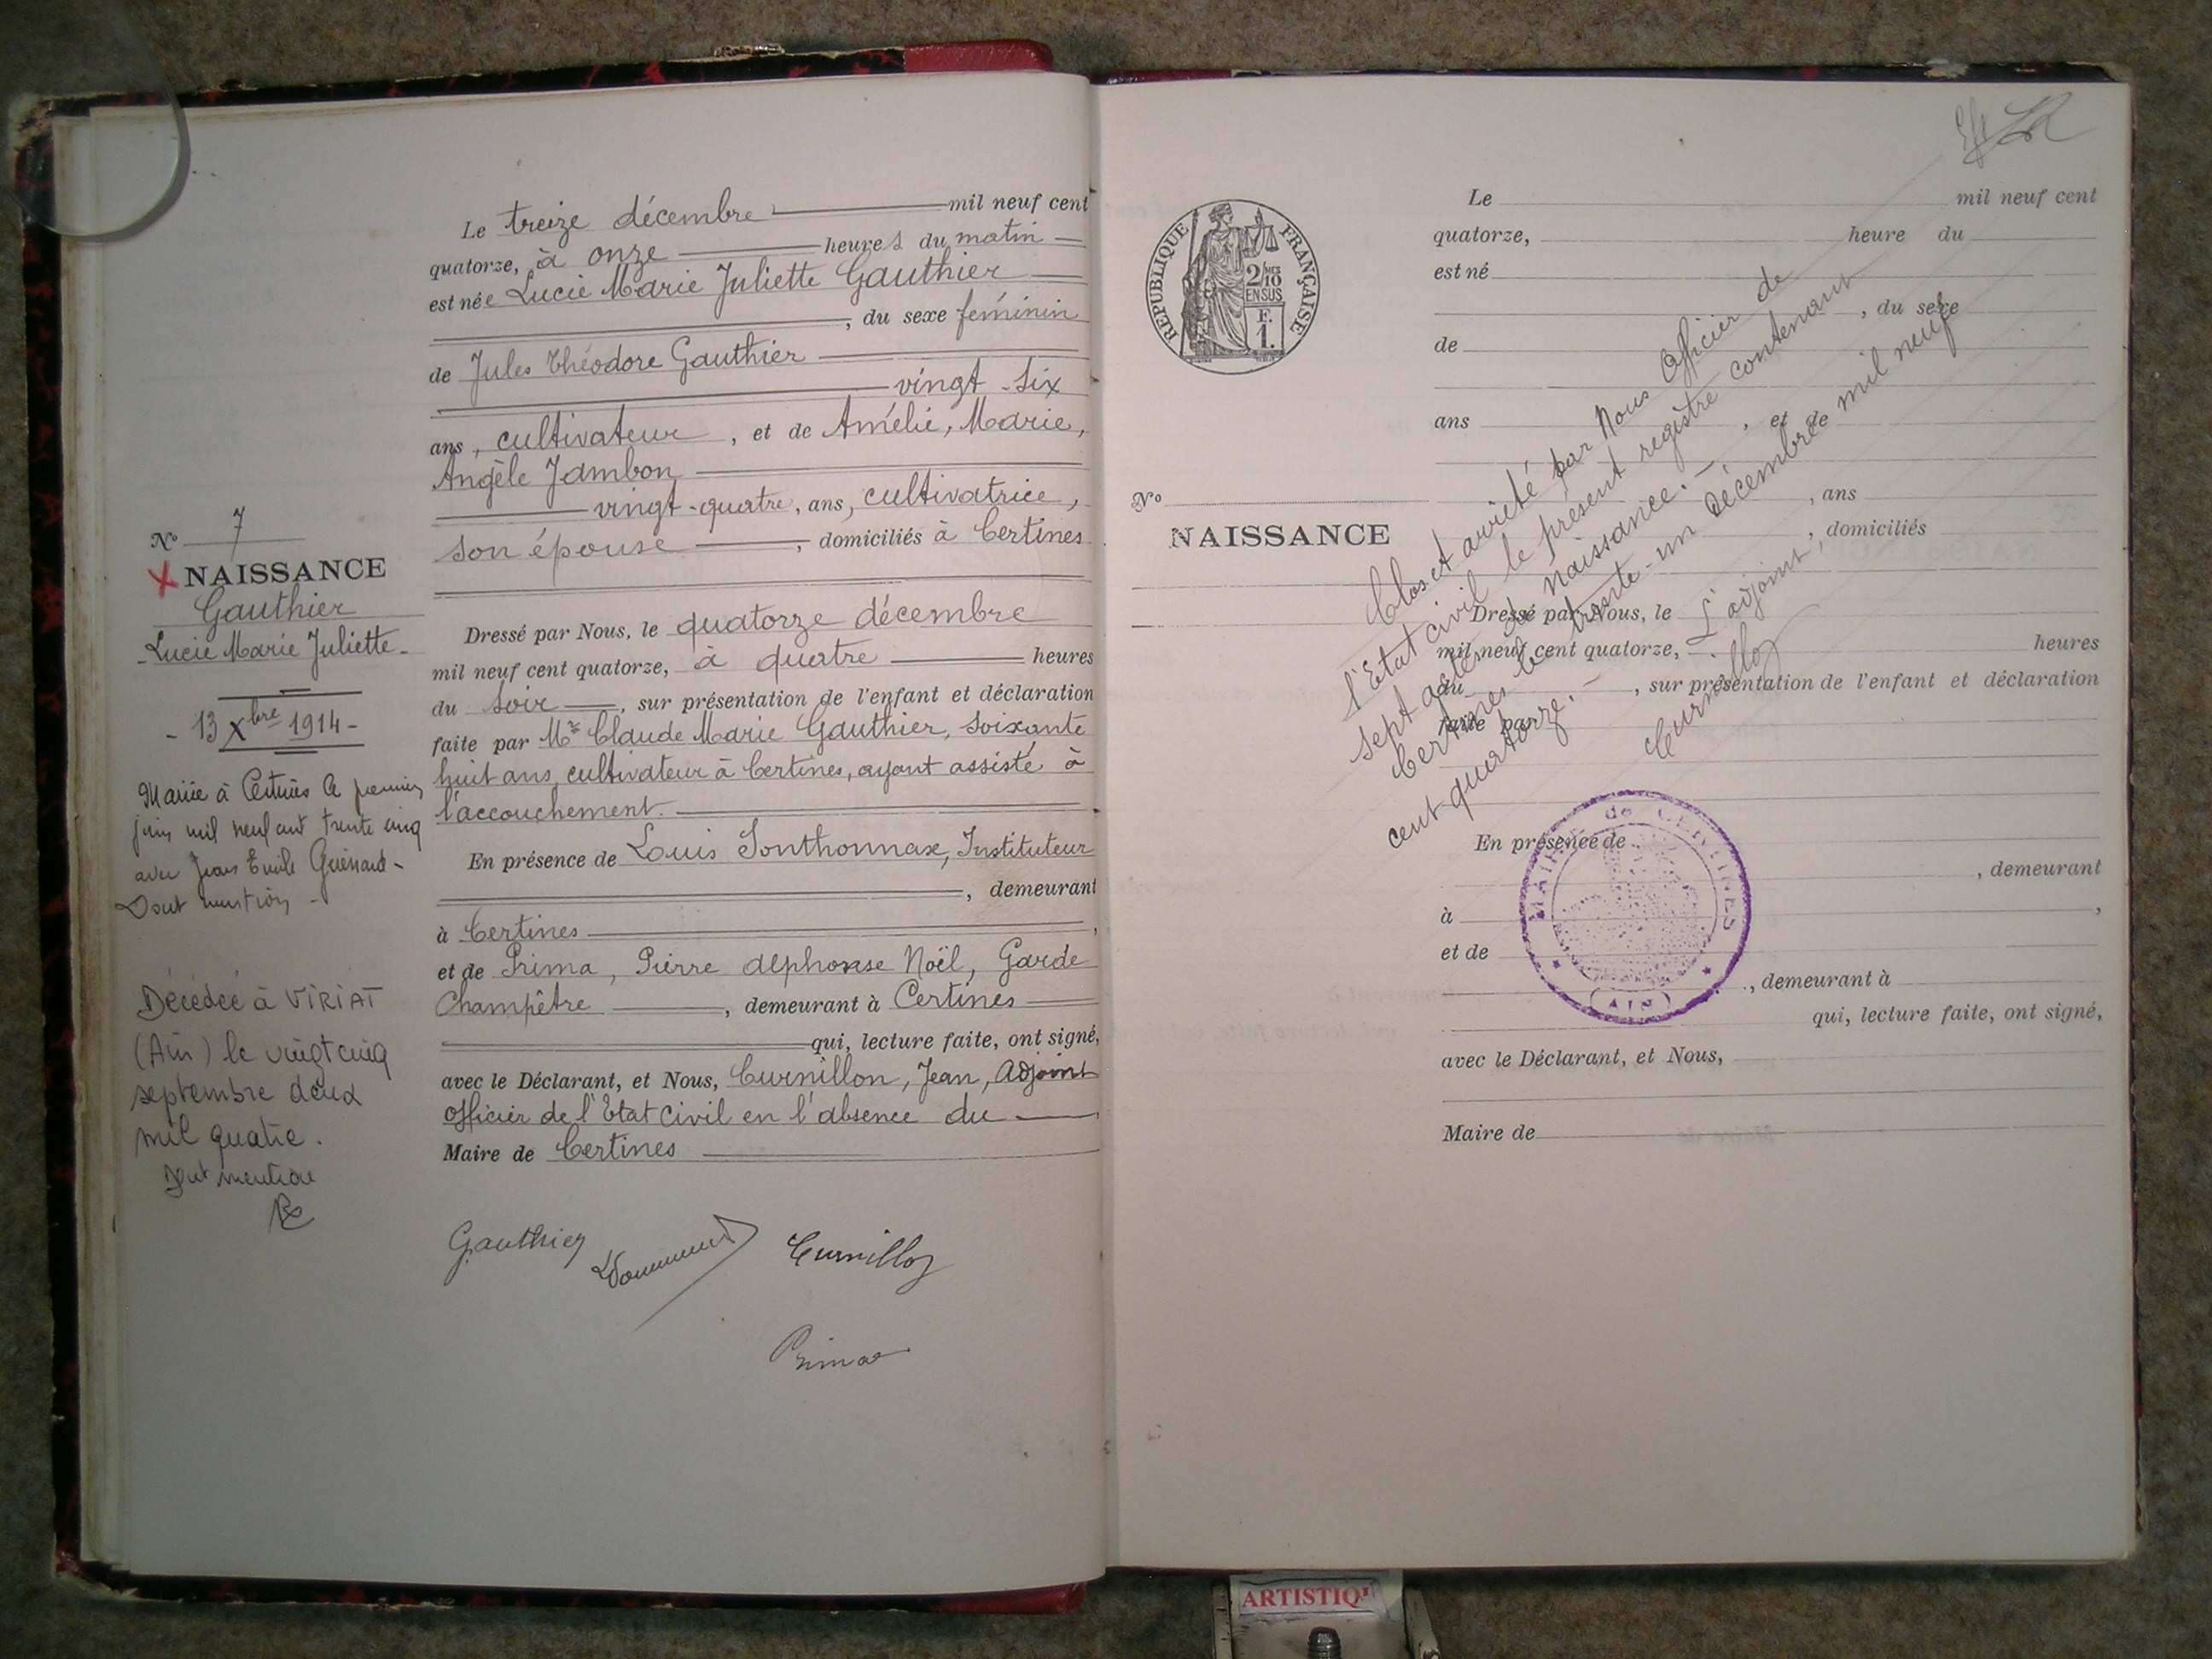 N° 7
NAISSANCE
Gauthier
Lucie Marie Juliette
13 Xbre 1914
Mariée à Certines le premier
juin mil neuf cent trente cinq
avec Jean Emile Guénard
Dont mention
Décédée à VIRIAT
(Ain) le vingt cinq
septembre deux
mil quatre.
Dont mention
Le treize décembre mil neuf cent
quatorze, à onze heures du matin
est née Lucie Marie Juliette Gauthier
, du sexe féminin
de Jules Théodore Gauthier
vingt-six
ans, cultivateur, et de Amélie, Marie,
Angèle Jambon
vingt-quatre, ans, cultivatrice,
son épouse, domiciliés à Certines
Dressé par Nous, le quatorze décembre
mil neuf cent quatorze, à quatre heures
du soir, sur présentation de l'enfant et déclaration
faite par Mr Claude Marie Gauthier, soixante
huit ans, cultivateur à Certines, ayant assisté à
l'accouchement.
En présence de Louis Sonthonnax, Instituteur
, demeurant
à Certines,
et de Prima, Pierre Alphonse Noël, Garde
Champêtre, demeurant à Certines
qui, lecture faite, ont signé,
avec le Déclarant, et Nous, Curnillon, Jean, Adjoint
Officier de l'Etat Civil en l'absence du
Maire de Certines
Gauthier
Curnillon
Prima
RÉPUBLIQUE FRANÇAISE
2/10
EN SUS
F.
1.
N°
NAISSANCE
Le mil neuf cent
quatorze, heure du
est né
, du sexe
de
ans, et de
, ans
, domiciliés
Dressé par Nous, le
mil neuf cent quatorze, heures
du, sur présentation de l'enfant et déclaration
faite par
En présence de
, demeurant
à,
et de
, demeurant à
qui, lecture faite, ont signé,
avec le Déclarant, et Nous,
Maire de
Clos et arrêté par Nous Officier de
l'Etat civil le présent registre contenant
sept actes de naissance.
Certines le trente-un Décembre mil neuf
cent quatorze.
L'adjoint,
Curnillon
MAIRIE de CERTINES
AIN
ARTISTIQ